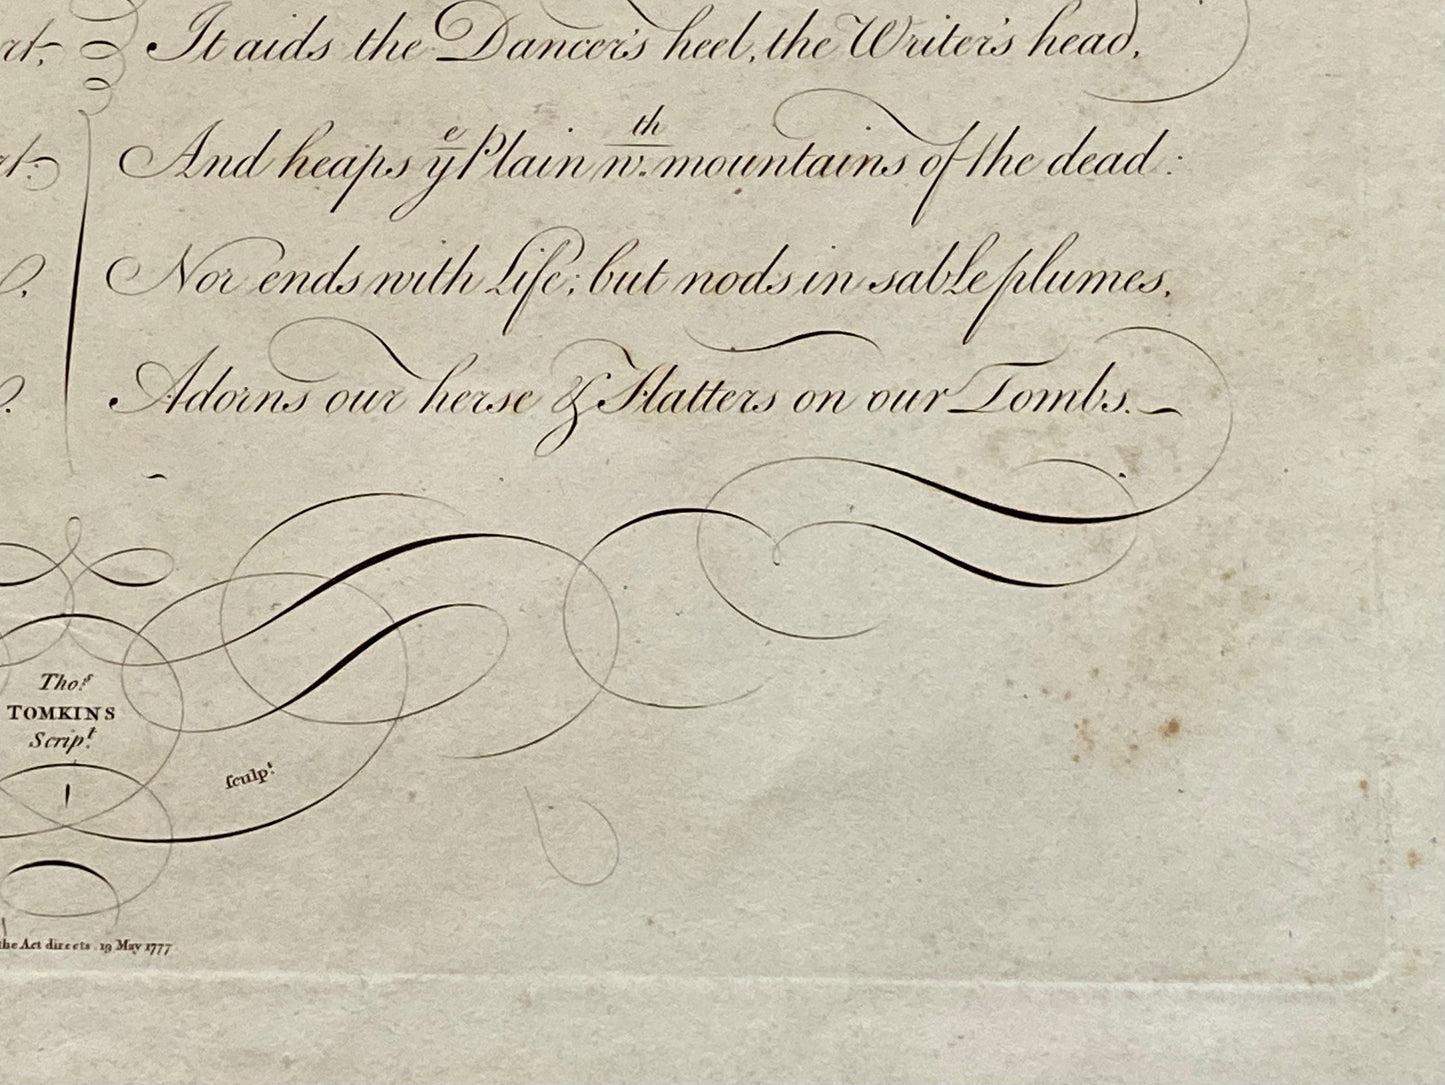 rt,
It aids the Dancer's heel, the Writer's head,
rt:
And heaps yͤ Plain wth. mountains of the dead:
Nor ends with Life; but nods in sable plumes,
Adorns our herse & Flatters on our Tombs.
Thos.
TOMKINS
Script.
sculpt.
the Act directs. 19 May 1777